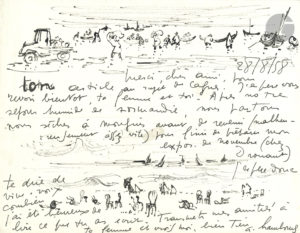 28/8/58
merci, cher ami, pour
ton article au sujet de J'espère vous
revoir bientôt ta femme et toi. Après notre
séjour humide de normandie nous partons
nous sécher à mougins avant de revenir malheu-
reusement assez vite pour finir de préparer mon
expos. de novembre (chez
Drouant)
J'espère donc
te dire de
vive voix
combien
j'ai été heureux de
lire ce que tu as écrit. Transmets mes amitiés à
ta femme et crois moi, bien tien, à hambourg